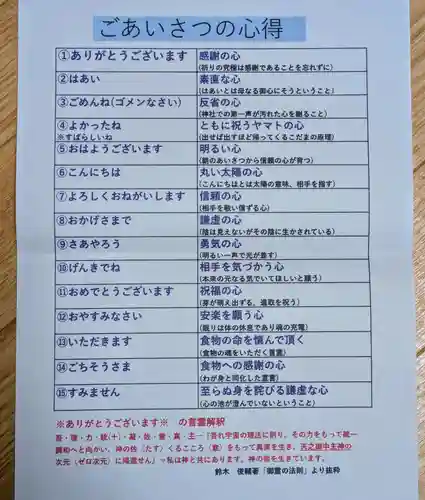 ごあいさつの心得
①ありがとうございます 感謝の心
(祈りの究極は感謝であることを忘れずに)
②はあい 素直な心
(はあいとは母なる御心にそうということ)
③ごめんね(ゴメンなさい) 反省の心
(神社での第一声が汚れた心を謝ること)
④よかったね ともに祝うヤマトの心
※すばらしいね (出せば出すほど帰ってくるこだまの原理)
⑤おはようございます 明るい心
(朝のあいさつから信頼の心が育つ)
⑥こんにちは 丸い太陽の心
(こんにちはとは太陽の意味、相手を指す)
⑦よろしくおねがいします 信頼の心
(相手を敬い信ずる心)
⑧おかげさまで 謙虚の心
(陰は見えないがその陰に生かされている)
⑨さあやろう 勇気の心
(明るい一声で元が差す)
⑩げんきでね 相手を気づかう心
(本来の元なる気でいてほしいと願う)
⑪おめでとうございます 祝福の心
(芽が萌え出ずる、進取を祝う)
⑫おやすみなさい 安楽を願う心
(眠りは体の休息であり魂の充電)
⑬いただきます 食物の命を慎んで頂く
(食物の魂をいただく言霊)
⑭ごちそうさま 食物への感謝の心
(わが身と同化した言霊)
⑮すみません 至らぬ身を詫びる謙虚な心
(心の池が澄んでいないということ)
※ありがとうございます※ の言霊解釈
次元（ゼロ次元）に帰還せん」＝私は神と共にあります。神の宿を生きています。
鈴木 俊輔著「御霊の法則」より抜粋